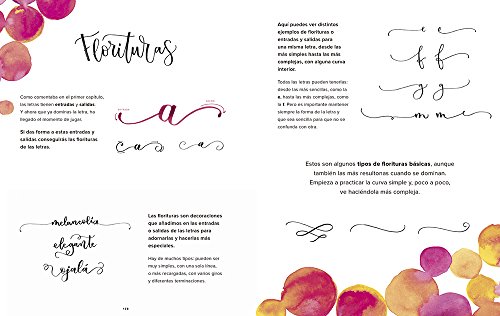 Florituras
Como comentaba en el primer capítulo,
las letras tienen entradas y salidas.
Y ahora que ya dominas la letra, ha
llegado el momento de jugar.
Si das forma a estas entradas y
salidas conseguirás las florituras
de las letras.
a
a a
melancolía
elegante
ojalá
Las florituras son decoraciones
que añadimos en las entradas
o salidas de las letras para
adornarlas y hacerlas más
especiales.
Hay de muchos tipos: pueden ser
muy simples, con una sola línea,
o más recargadas, con varios giros
y diferentes terminaciones.
Aquí puedes ver distintos
ejemplos de florituras o
entradas y salidas para
una misma letra, desde
las más simples hasta las
más complejas, con alguna curva
interior.
Todas las letras pueden tenerlas:
desde las más sencillas, como la
a, hasta las más complejas, como
la f. Pero es importante mantener
siempre la forma de la letra y
que sea sencilla para que no se
confunda con otra.
e e
f f
g g
m m
Estos son algunos tipos de florituras básicas, aunque
también las más resultonas cuando se dominan.
Empieza a practicar la curva simple y, poco a poco,
ve haciéndola más compleja.